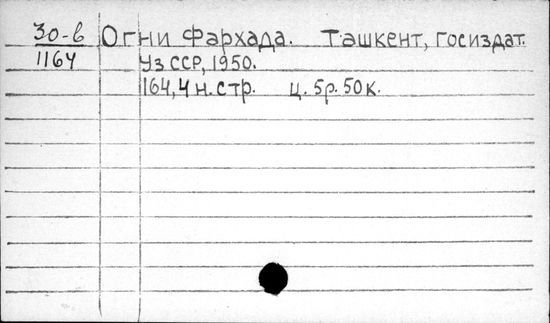 30-6 Огни Фархада. Ташкент, Госиздат.
1164 Уз ССР, 1950.
164,4 н. стр. ц. 5р. 50к.